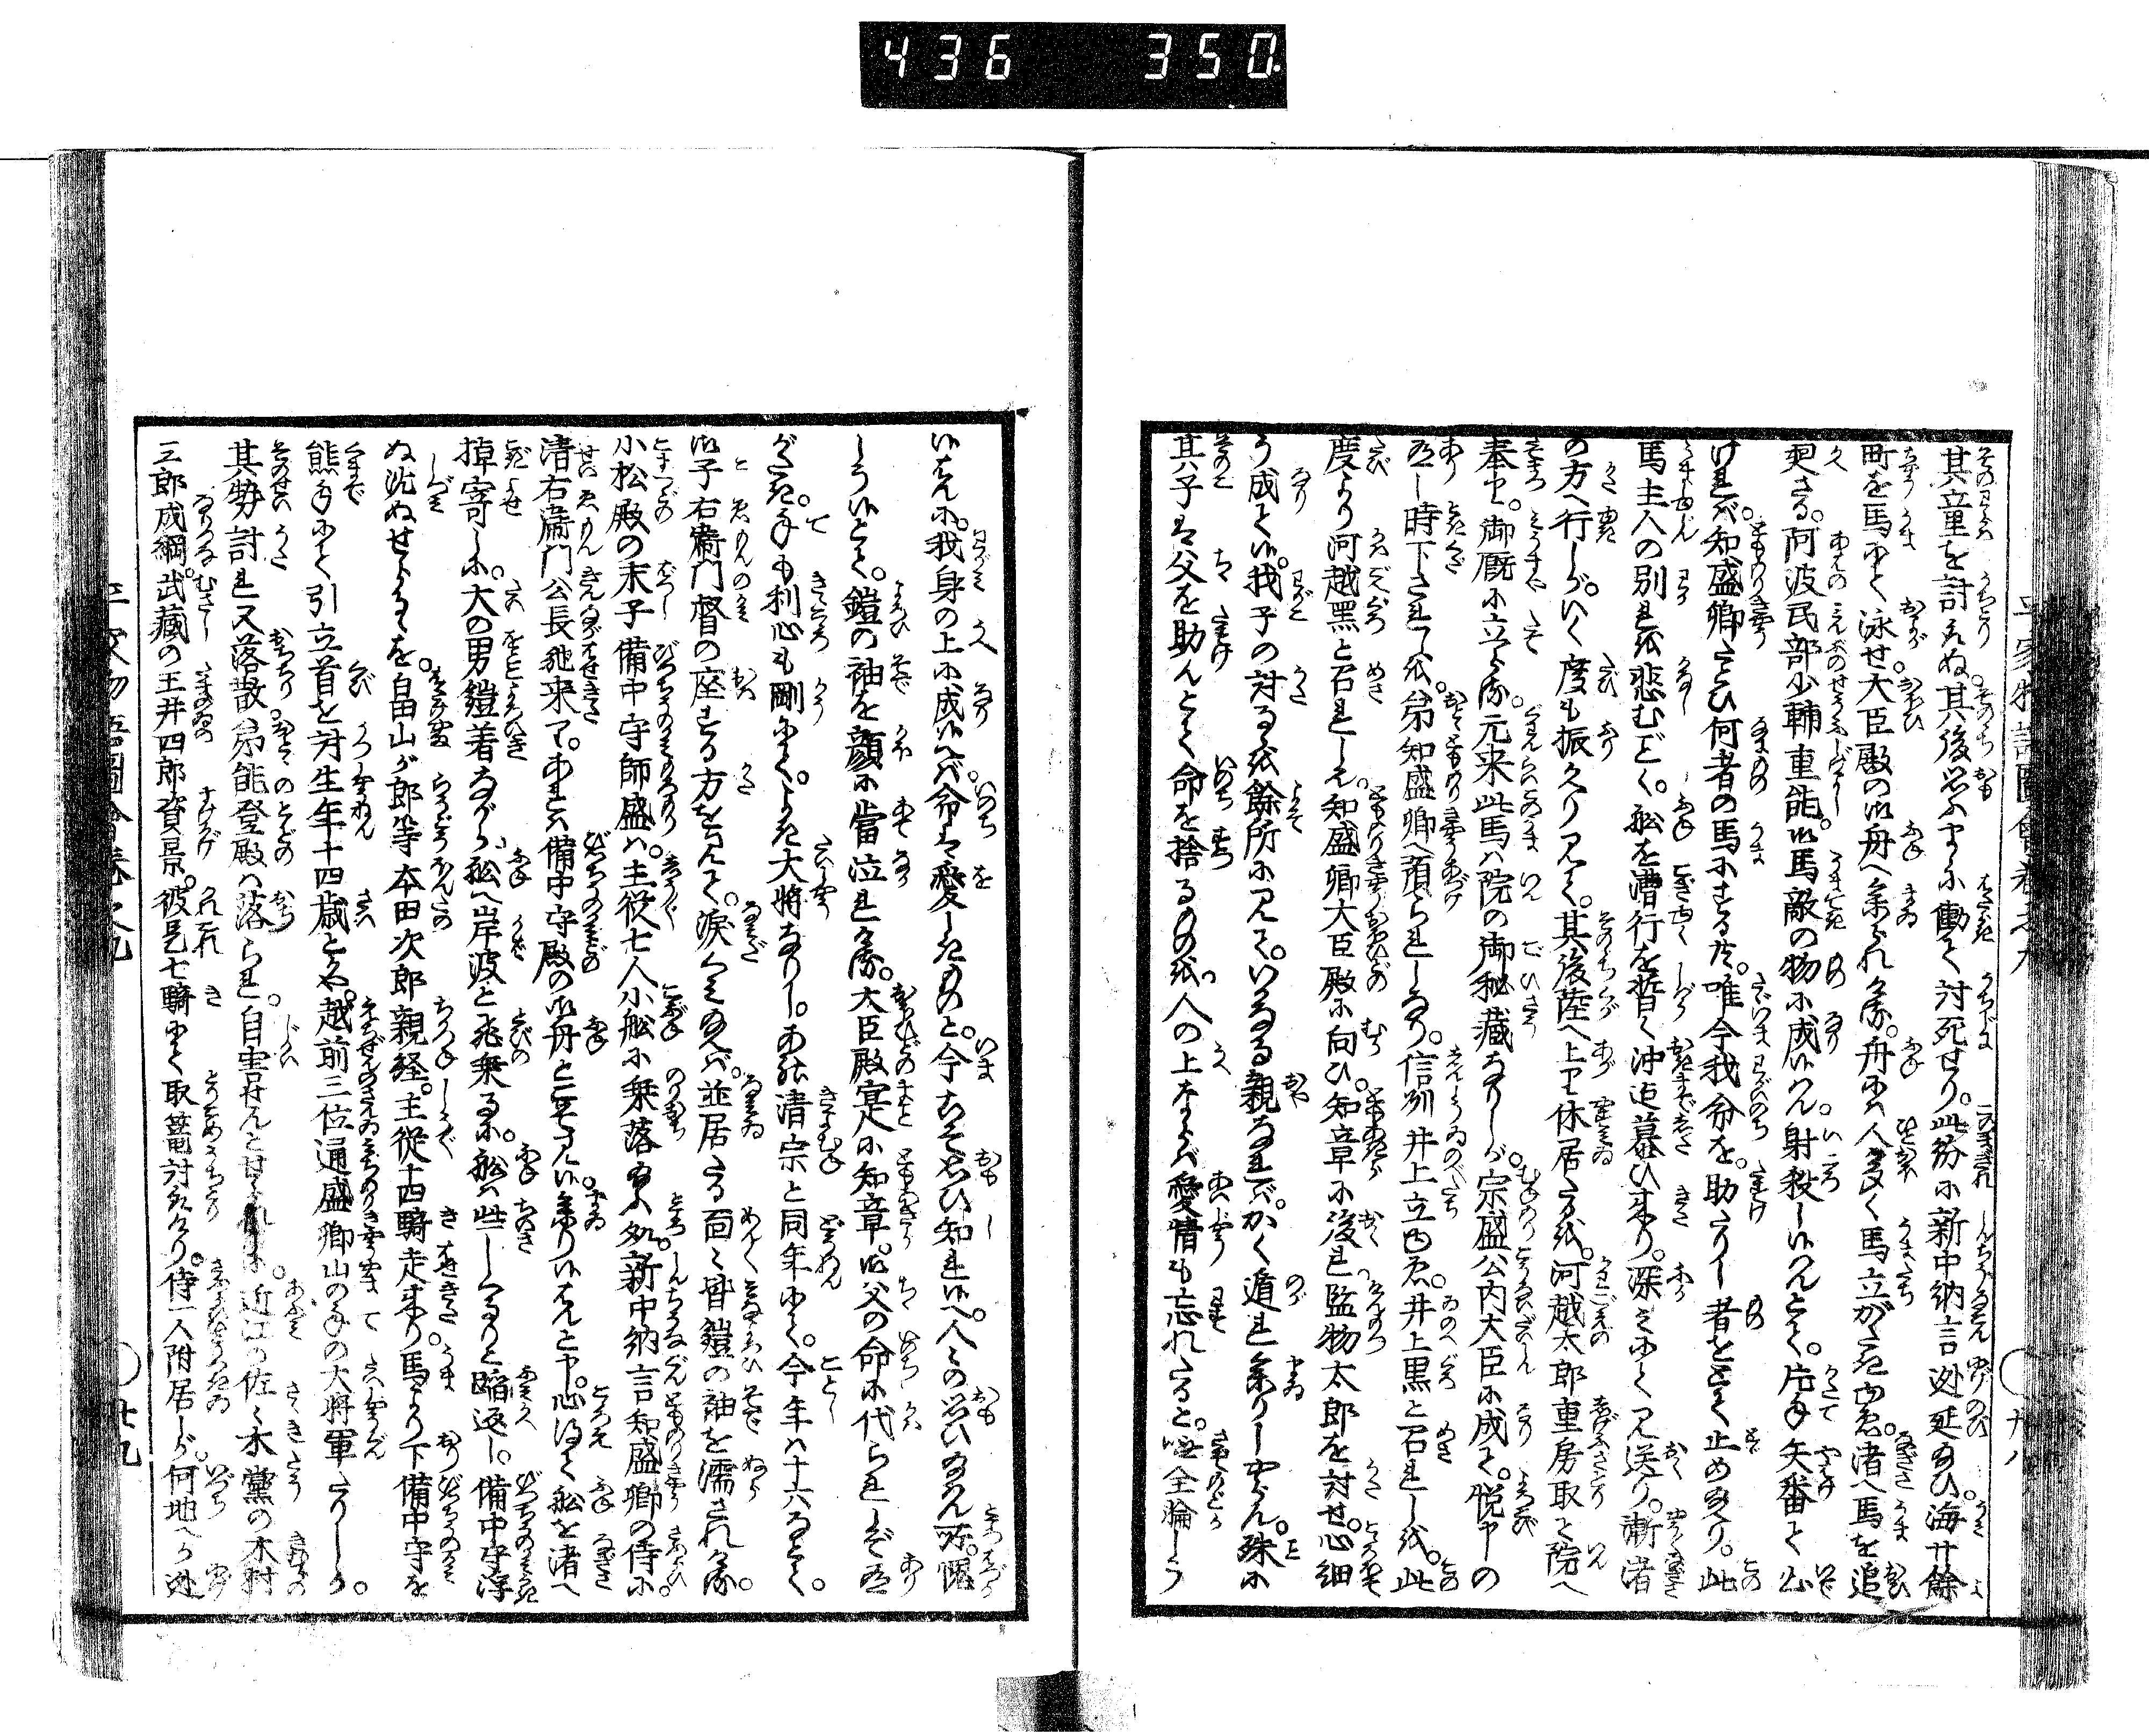 436 350
其童を討取ぬ。其後思ふさまに働て討死せり。此紛に新中納言迯延給ひ。海廿餘
町を馬にて泳せ。大臣殿の御舟へ参られける。舟には人多く馬立がたきゆゑ。渚へ馬を追
奥さる。阿波民部少輔重能。御馬敵の物に成いはん。射殺しいはんとて。片手矢番て出
ければ。知盛卿たとひ何者の馬にするとも。唯今我命を。助たりし者をとて止め給へり。此
馬主人の別れを悲むにや。舩を漕行を暫く沖迄慕ひ来り。深みにて見送り。漸渚
の方へ行しが。いく度も振久り見て。其後陸へ上て休居たるを。河越太郎重房取て院へ
奉す。御厩に立らる。元来此馬ハ院の御秘蔵なりしが。宗盛公内大臣に成て。悦申の
有し時下されしを。弟知盛卿へ預られしなり。信列井上立ゆゑ。井上黒と召れしを。此
度より河越黒と召れしとぞ。知盛卿大臣殿に向ひ。知章に後れ監物太郎を討せ。心細
う成ていは。我子の討るを餘所に見て。いかなる親なれば。かく遁れ参りしやらん。殊に
其子は父を助んとて命を捨るものを。人の上ならば愛情も忘れたると。嘸全論しう
いはんに。我身の上に成いへば。命は愛しきものと。今こそ思ひ知れいへ。人々の思ひ給はん所。慚
しういとて。鎧の袖を顔に當泣れける。大臣殿寔に知章。御父の命に代られしぞ有
がたき。手も利心も剛にて。よき大将なりし。あれ清宗と同年にて。今年ハ十六なるとて。
御子右衛門督の座する方を見て。涙ぐみ給へば。並居たる面々皆鎧の袖を濡されける。
小松殿の末子備中守師盛ハ。主従七人小船に乗落給ふ処。新中納言知盛卿の侍に。
清右衛門公長馳来て。あれハ備中守殿の御舟と見て候。参りいはんと申。心得て舩を渚へ
掉寄しに。大の男鎧着ながら舩へ岸波と飛乗るに。舩は些しかなりと蹈返し。備中守浮
ぬ沈ぬせらるゝを。畠山が郎等本田次郎親経。主従十四騎走来り。馬より下備中守を
熊手にて引立首を討生年十四歳とかや。越前三位通盛卿山の手の大将軍たりしが。
其勢討れ又落散。弟能登殿ハ落られ。自害せんとせられしに。近江の佐々木黨の木村
三郎成綱。武蔵の玉井四郎資景。彼是七騎にて取篭討取けり。侍一人附居しが。何地へか迯